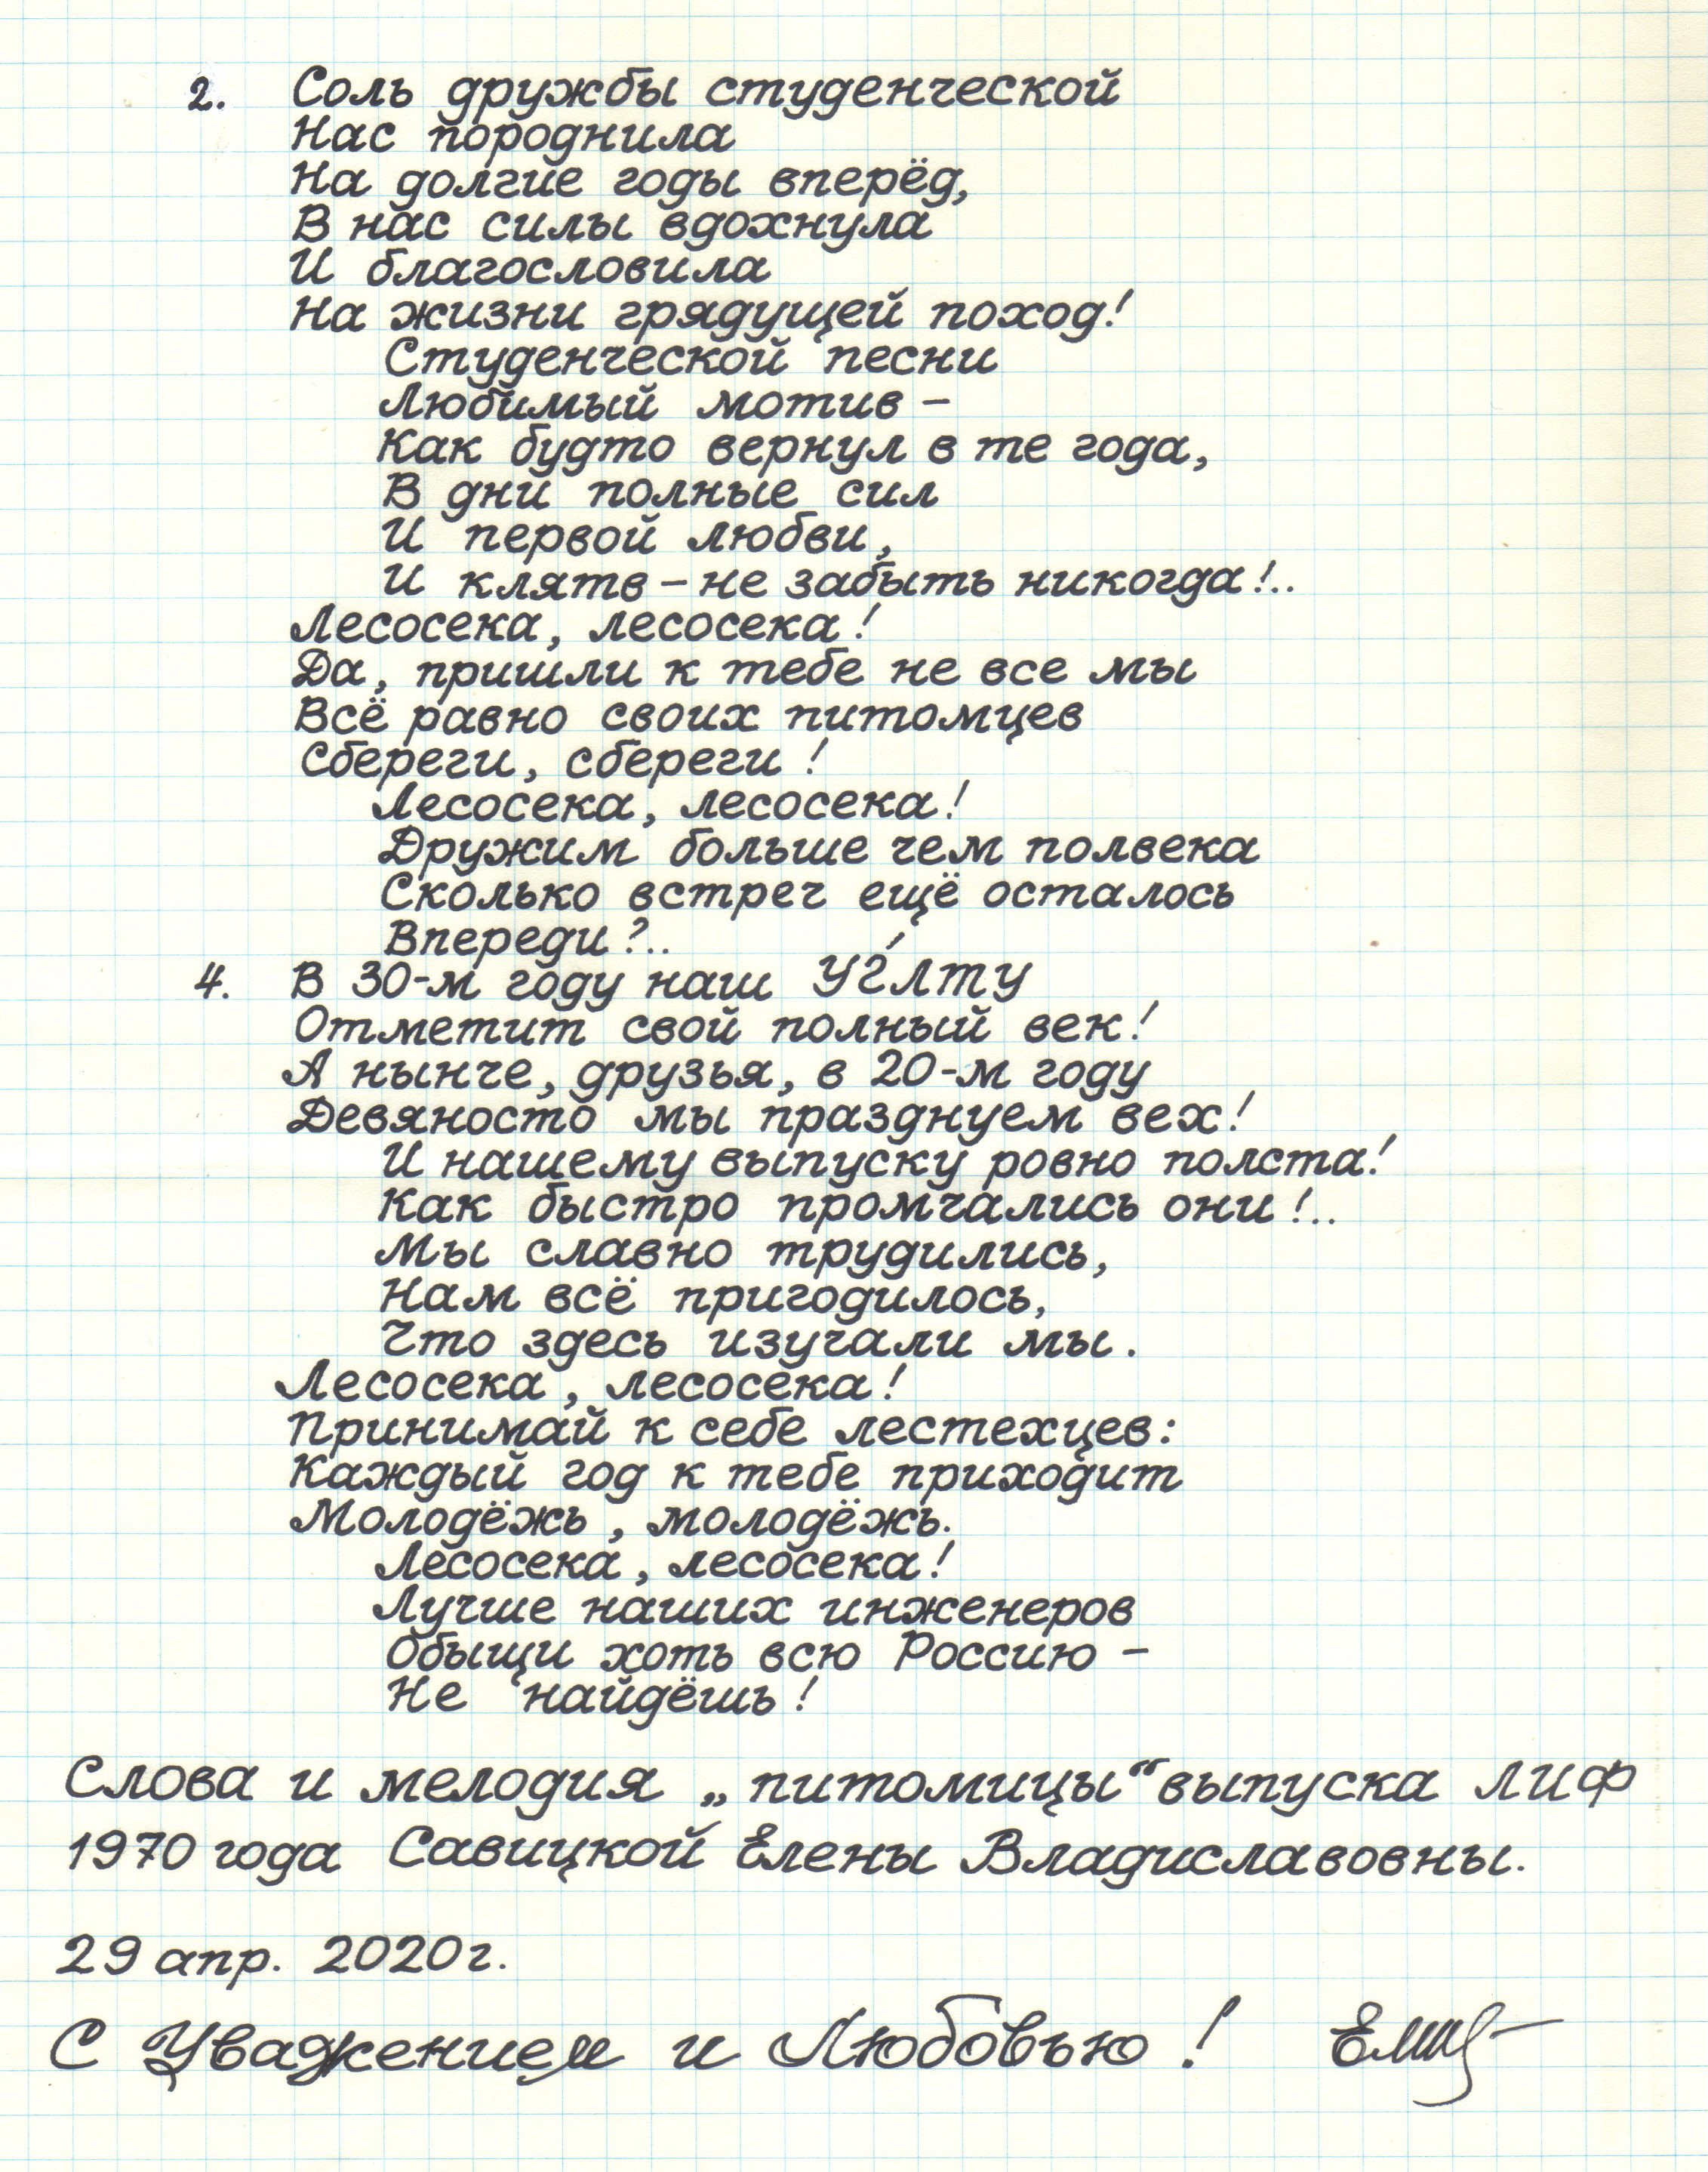 2. Соль дружбы студенческой
Нас породнила
На долгие годы вперёд,
В нас силы вдохнула
И благословила
На жизни грядущей поход!
Студенческой песни
Любимый мотив –
Как будто вернул в те года,
В дни полные сил
И первой любви,
И клятв – не забыть никогда!..
Лесосека, лесосека!
Да, пришли к тебе не все мы
Всё равно своих питомцев
Сбереги, сбереги!
Лесосека, лесосека!
Дружим больше чем полвека
Сколько встреч ещё осталось
Впереди?..
4. В 30-м году наш УЃЛТУ
Отметит свой полный век!
А нынче, друзья, в 20-м году
Девяносто мы празднуем вех!
И нашему выпуску ровно полста!
Как быстро промчались они!..
Мы славно трудились,
Нам всё пригодилось,
Что здесь изучали мы.
Лесосека, лесосека!
Принимай к себе лестехцев:
Каждый год к тебе приходит
Молодёжь, молодёжь.
Лесосека, лесосека!
Лучше наших инженеров
Обыщи хоть всю Россию –
Не найдёшь!
Слова и мелодия „питомицы“ выпуска ЛИФ
1970 года Савицкой Елены Владиславовны.
29 апр. 2020г.
С Уважением и Любовью!